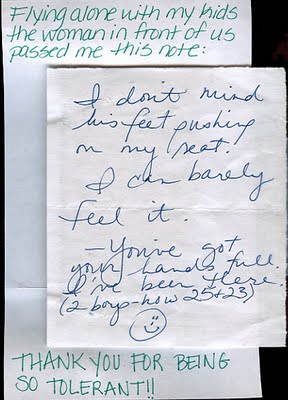 Flying alone with my kids
the woman in front of us
passed me this note:
I don't mind
his feet pushing
on my seat.
I can barely
feel it.
- You've got
your hands full.
I've been there.
(2 boys-now 25+23)
THANK YOU FOR BEING
SO TOLERANT!!